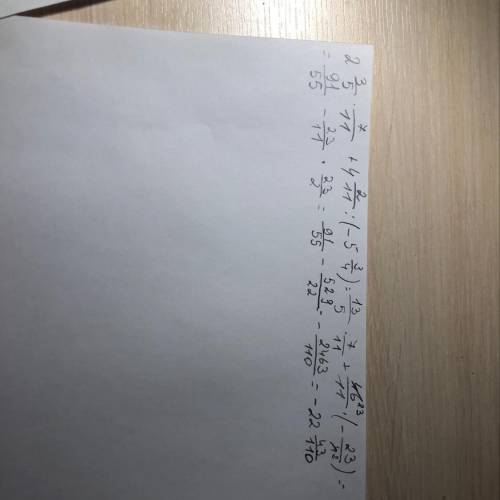 2 3/5 · 7/11 + 4 2/11 : (-5 3/4) = 13/5 · 7/11 + 46 23/11 · (-23/42) =
= 91/55 - 23/11 · 23/2 = 91/55 - 529/22 = - 2463/110 = -22 43/110